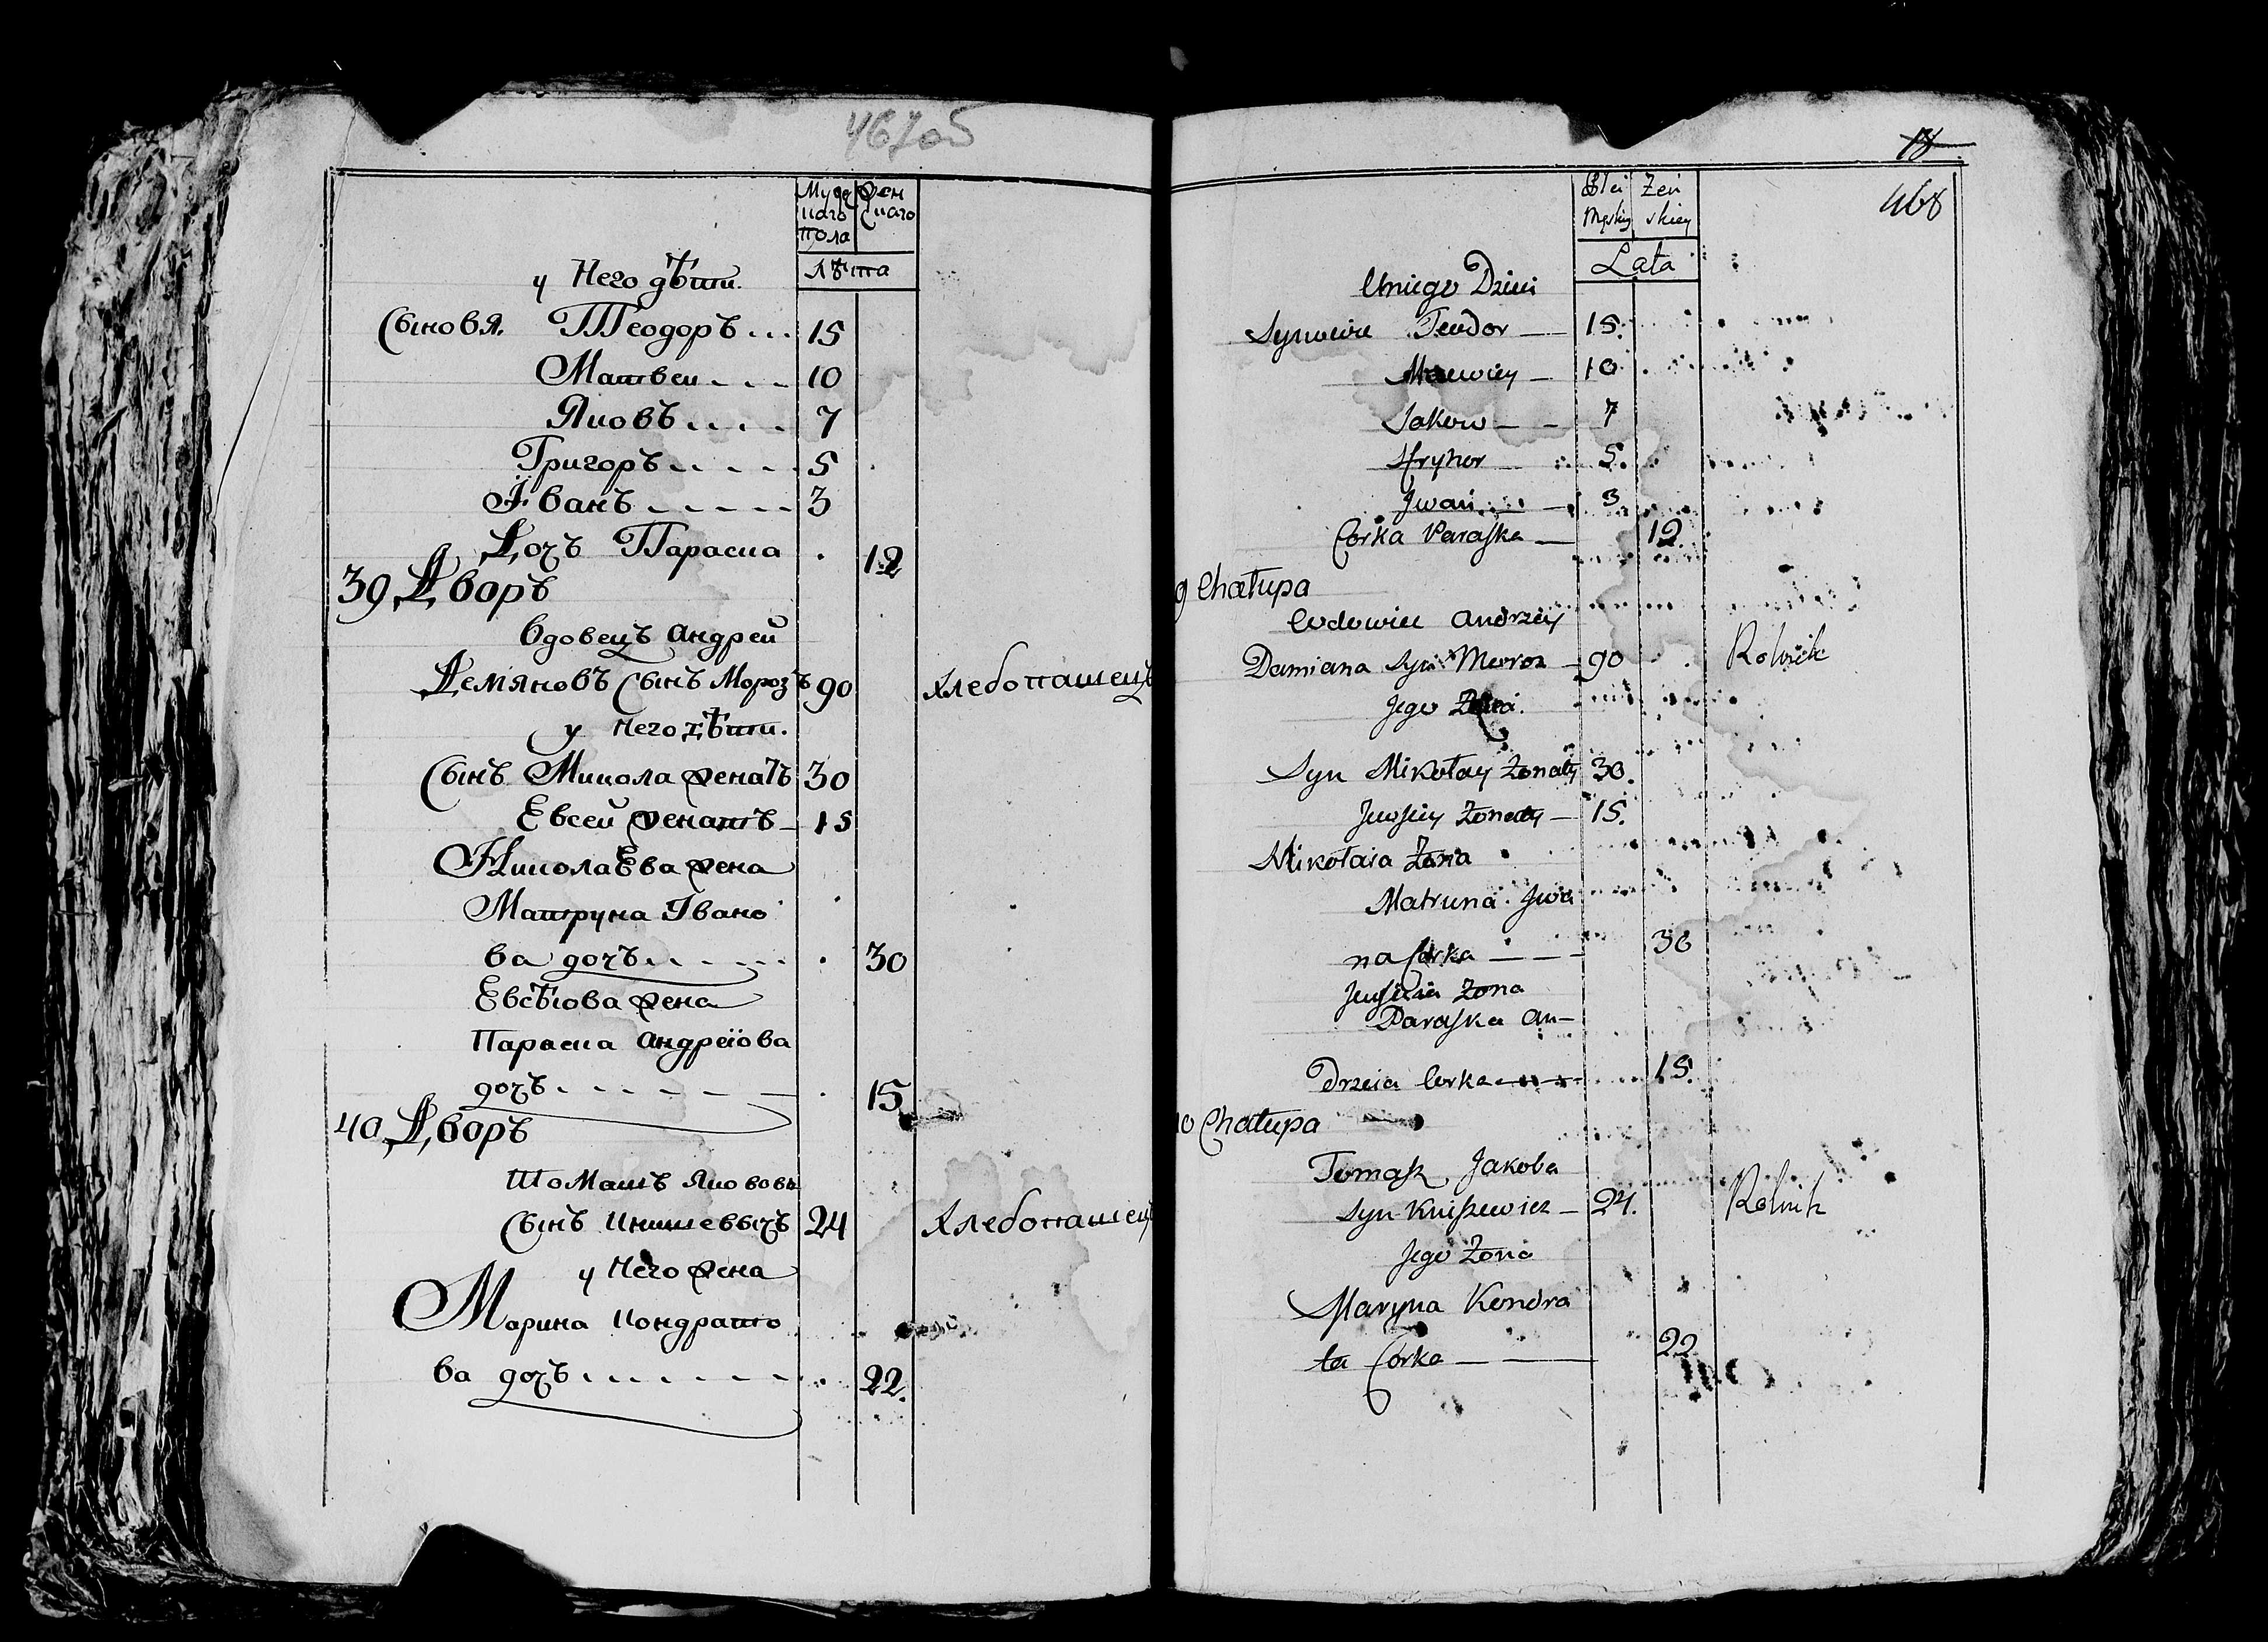 467об
Мужскаго пола
Женскаго
Лѣта
у Него дѣти.
Сыновя. Теодоръ 15
Матвей 10
Яковъ 7
Григоръ 5
Іванъ 3
Дочь Параска 12
39 Дворъ
Вдовецъ Андрей
Демяновъ Сынъ Морозъ 90 Хлебопашецъ
у Него дѣти.
Сынъ Микола женатъ 30
Евсей женатъ 15
Николаева жена
Матруна Івано
ва дочь 30
Евсѣова жена
Параска Андреіова
дочь 15
40 Дворъ
Томашъ Яковова
Сынъ Книшевычъ 24 Хлебопашецъ
у Него жена
Марина Кондрато
ва дочь 22.
18
468
Płci Męskiey
Żeńskiey
Lata
U niego Dzieci
Synowie Teodor 15.
Macwiey 10
Jakow 7
Hryhor 5.
Jwan 3
Corka Paraska 12.
9 Chałupa
Wdowiec Andrzey
Damiana Syn Moroz 90 Rolnik
Jego Żona.
Syn Mikołay Żonaty 30.
Jewsiey Żonaty 15.
Mikołaia Żona
Matruna Jwa
na Corka 30
Jewsieia Żona
Paraska An-
drzeia Corka 15.
10 Chałupa
Tomasz Jakoba
Syn Kniszewicz 24. Rolnik
Jego Żona
Maryna Kondra
ta Corka 22